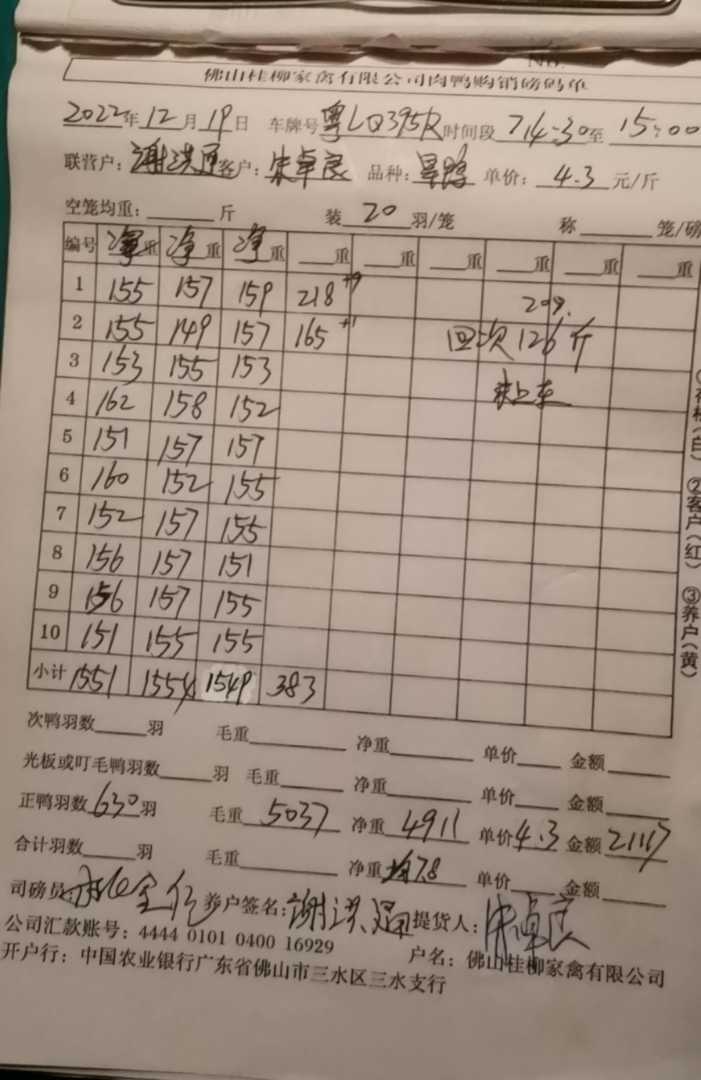 No.
佛山桂柳家禽有限公司肉鸭购销磅码单
2022年12月19日 车牌号粤LQ395R时间段 14:30至15:00
联营户:谢洪通客户:宋卓良 品种: 单价:4.3元/斤
空笼均重:斤 装20羽/笼 称笼/磅
编号 净重 净重 净重 重 重 重 重 重 重
1 155 157 159 218+9 20只
2 155 149 157 165+1 回次126斤
3 153 155 153
4 162 158 152 未上车
5 151 157 157
6 160 152 155
7 152 157 155
8 156 157 151
9 156 157 155
10 151 155 155
小计 1551 1554 1549 383
次鸭羽数羽 毛重 净重 单价 金额
光板或叮毛鸭羽数羽 毛重 净重 单价 金额
正鸭羽数630羽 毛重5037 净重4911 单价4.3 金额21117
合计羽数羽 毛重 净重均7.8 单价 金额
司磅员: 养户签名:谢洪通 提货人:宋卓良
公司汇款账号:4444 0101 0400 16929 户名:佛山桂柳家禽有限公司
开户行:中国农业银行广东省佛山市三水区三水支行
(白)
②客户(红)
③养户(黄)